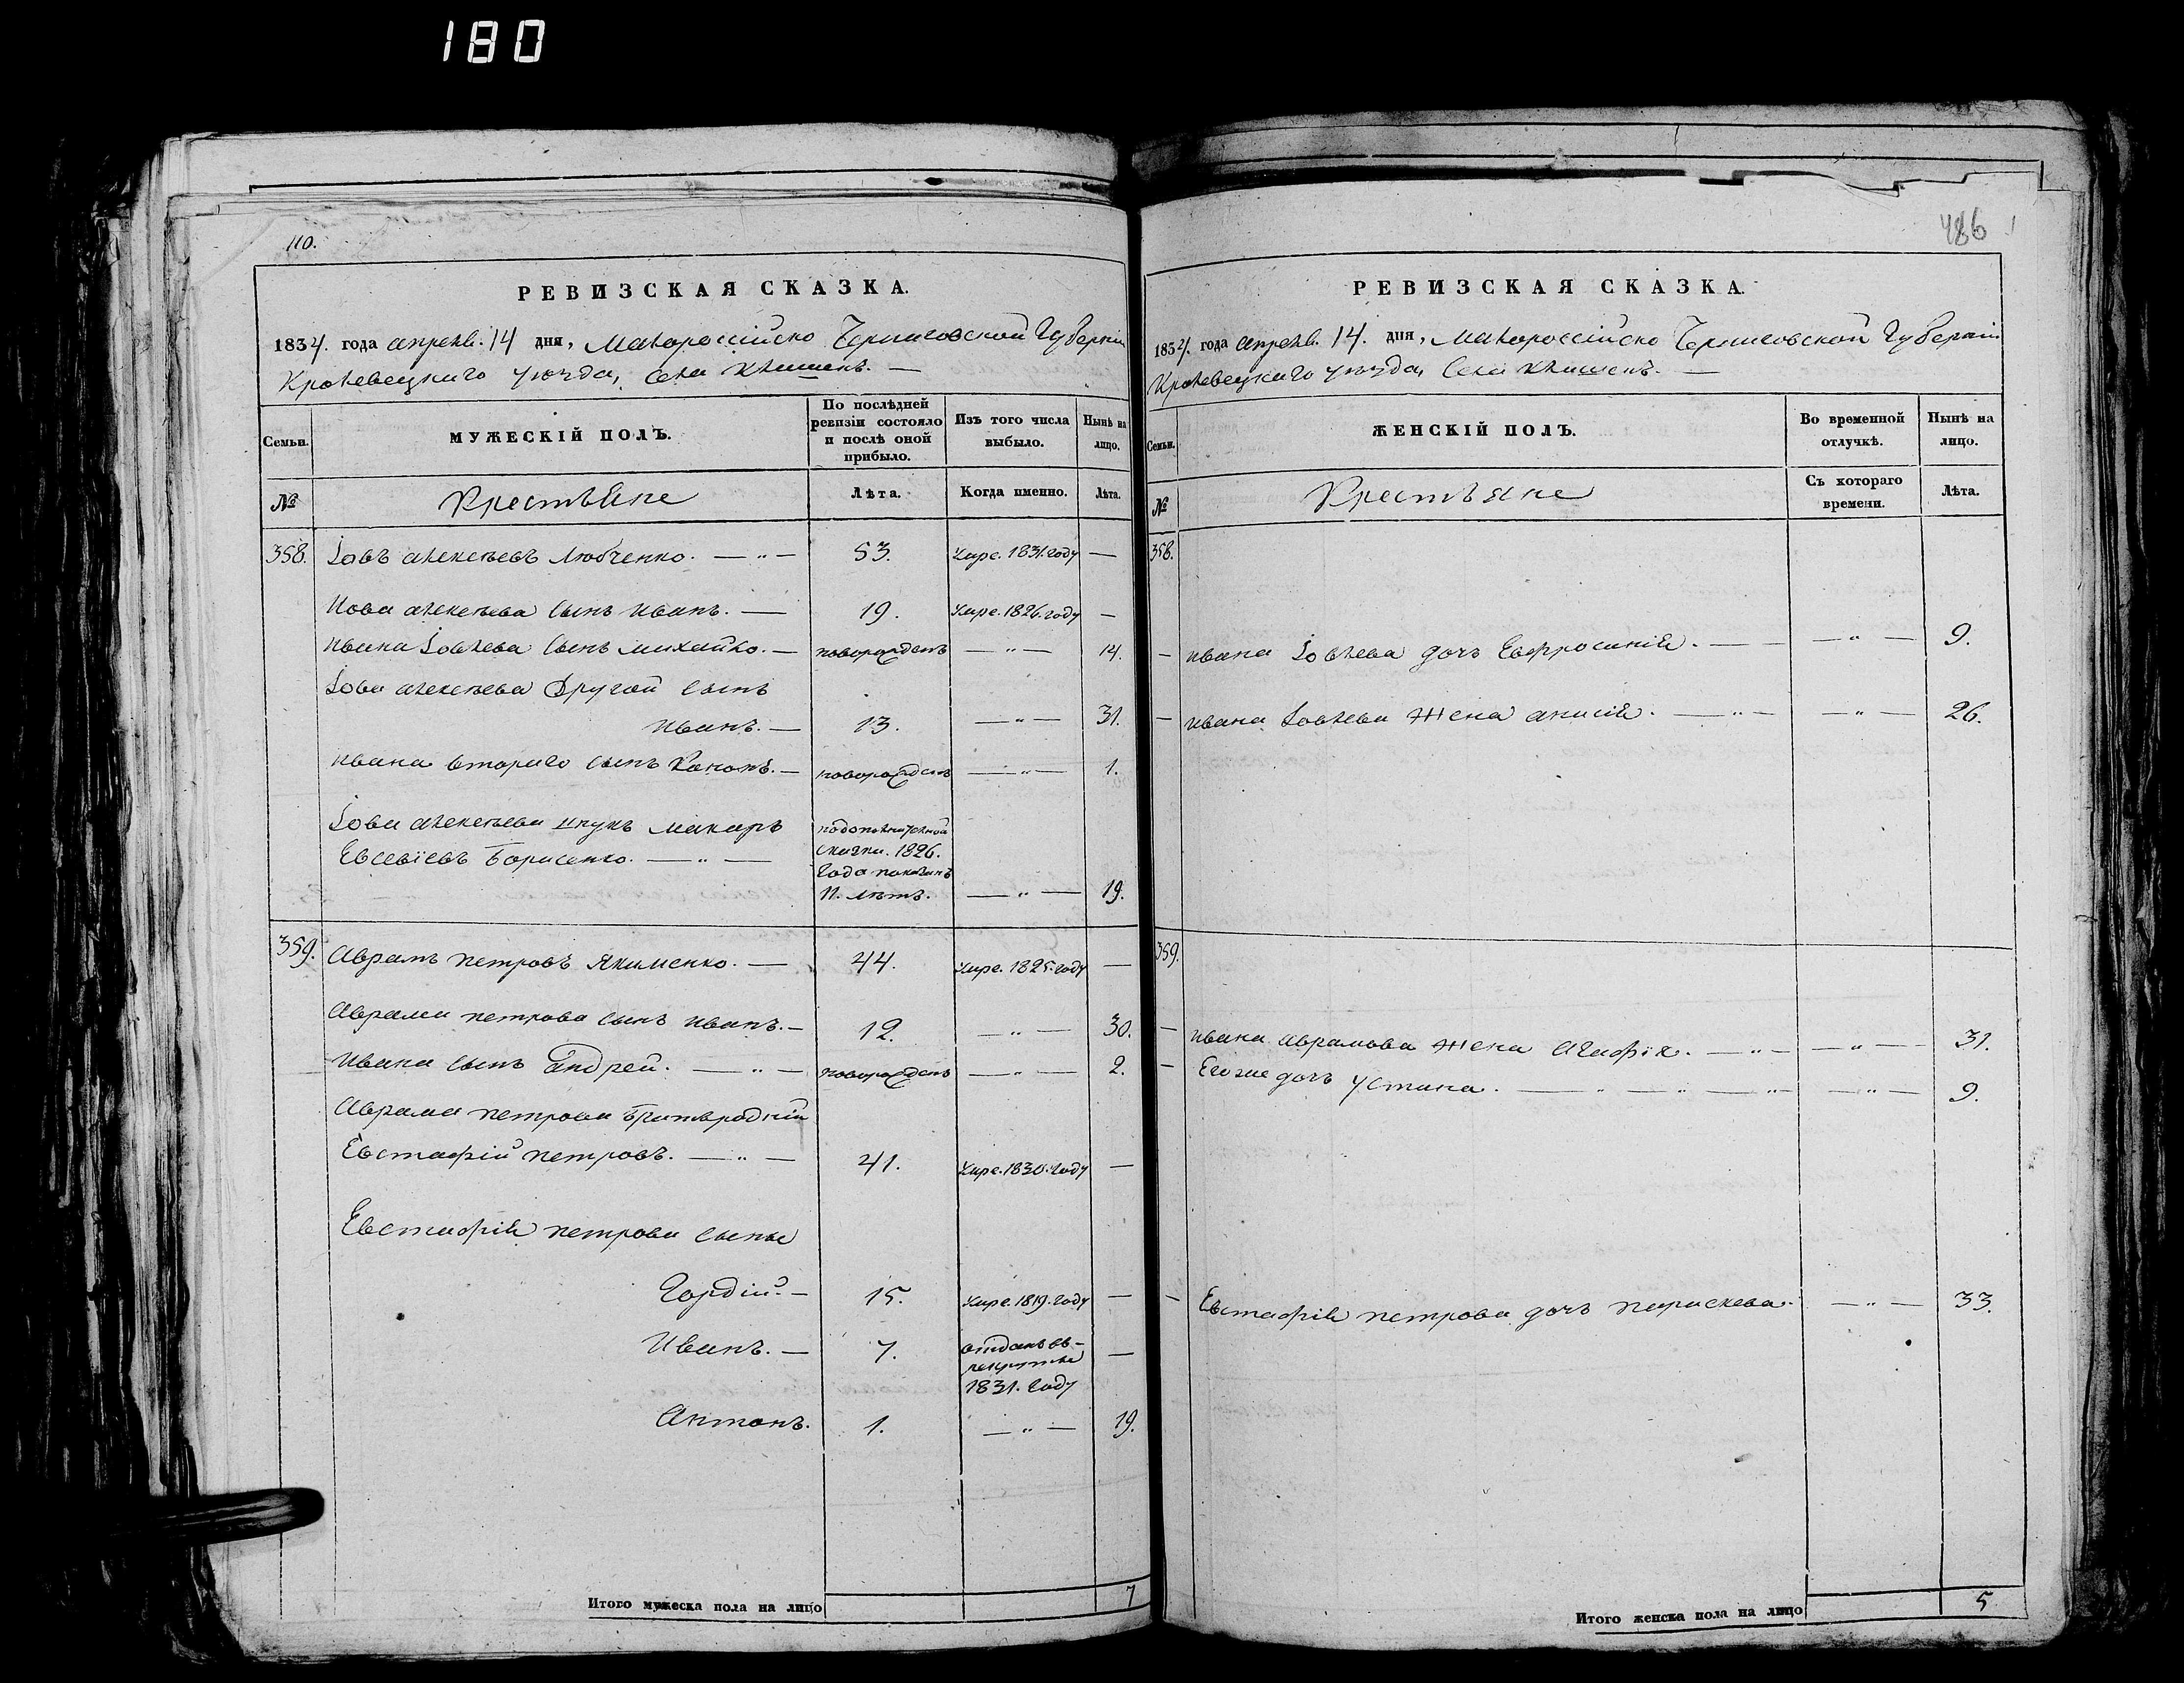 180
110.
РЕВИЗСКАЯ СКАЗКА.
1834. года апреля. 14 дня, Малороссійско Черниговской Губерніи
Кролевецкаго уезда, Села Клишекъ. —
Семьи.
МУЖЕСКІЙ ПОЛЪ.
По послѣдней ревизіи состояло и послѣ оной прибыло.
Изъ того числа выбыло.
Нынѣ на лицо.
№
Крестьяне
Лѣта.
Когда именно.
Лѣта.
358. Іовъ Алексеевъ Любченко. — „ — 53. умре. 1831. году —
Иова алексеева сынъ Иванъ. — 19. умре. 1826. году —
Ивана Іовлева сынъ Михайло. — новорожденъ — „ — 14.
Іова алексеева Другой сынъ
Иванъ. — 13. — „ — 31.
Ивана втораго сынъ Кононъ. — новорожденъ — „ — 1.
Іова алексеева внукъ Макаръ
Евсевіевъ Борисенко. — „ —
подополнительной
сказки. 1826.
года показанъ
11. летъ. — „ — 19.
359. Аврамъ петровъ Якименко. — 44. умре. 1825. году —
Аврама петрова сынъ Иванъ. — 12. — „ — 30.
Ивана сынъ Андрей. — „ — новорожденъ — „ — 2.
Аврама петрова братьродній
Евстафій петровъ. — „ — 41. умре. 1830. году —
Евстафія петрова сынье
Гордій. — 15. умре. 1819. году —
Иванъ. — 7. отданъ въ-
рекруты
1831. году —
Антонъ. 1. — „ — 19.
Итого мужеска пола на лицо 7
486
РЕВИЗСКАЯ СКАЗКА.
1834. года апреля. 14. дня, Малороссійско Черниговской Губерніи
Кролевецкаго уезда, Села Клишекъ. —
Семьи.
ЖЕНСКІЙ ПОЛЪ.
Во временной отлучкѣ.
Нынѣ на лицо.
№
Крестьяне
Съ котораго времени.
Лѣта.
358.
— Ивана Іовлева дочъ Евфросинія. — — „ — 9.
— Ивана Іовлева жена анисія. — „ — — „ — 26.
359.
— Ивана Аврамова жена Агафія. — „ — — „ — 31.
— Его же дочъ Устина. — „ — „ — „ — — „ — 9.
— Евстафія петрова дочъ Параскева. — „ — 33.
Итого женска пола на лицо 5